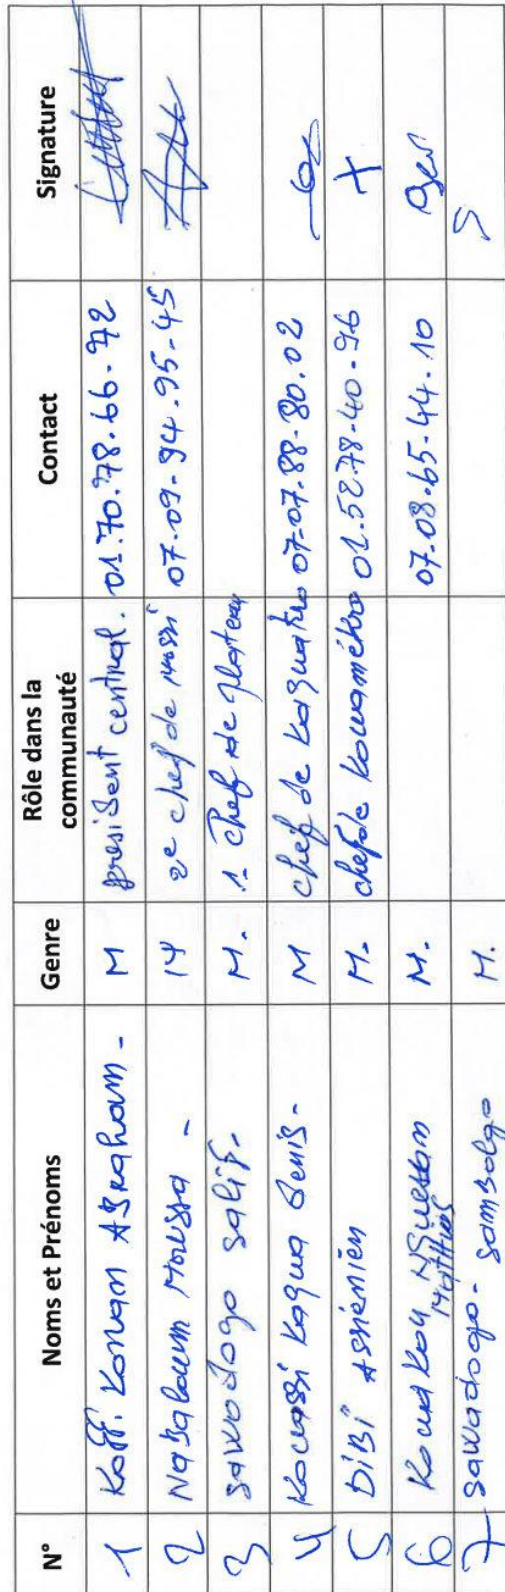 N° Noms et Prénoms Genre Rôle dans la communauté Contact Signature
1 Koffi Konan Abraham - M président central. 01.70.78.66.72
2 Nabaloum Moussa - M 2e chef de mossi 07-09-94.95-45
3 Sawadogo Salif. M. 1- Chef de plateau
4 Kouassi Kagua Denis - M chef de Kaguakro 07-07.88-80.02
5 DIBI Assiémien M. chef de Kouamékro 01.52.78-40-96 +
6 Kouakou N'Guessan Mathias M. 07-08.65-44.10
7 Sawadogo - Sambolgo M.